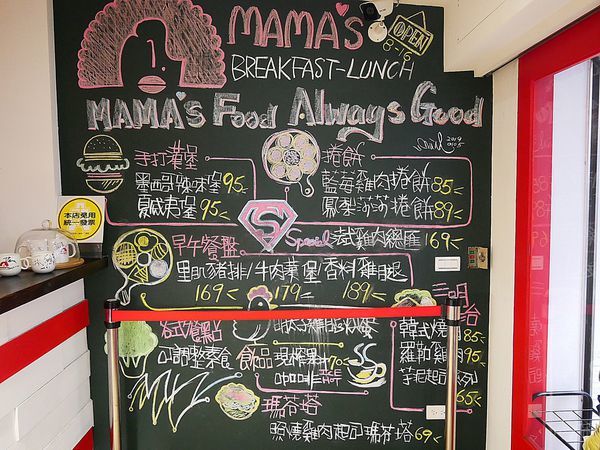 MAMA'S
OPEN
8-16
BREAKFAST-LUNCH
MAMA'S Food Always Good
手打漢堡
墨西哥辣味堡 95
夏威夷堡 95
捲餅
藍莓雞肉捲餅 85
鳳梨莎莎捲餅 89
S
Special 雞肉總匯 169
本店免用
統一發票
早午餐盤
里肌豬排/牛肉漢堡 香料雞腿
169 179 189
三明治
韓式燒 85
羅勒雞 95
65
美式餐點
口調整素食
食品
現榨果汁 70
咖啡
瑪芬塔
照燒雞肉起司瑪芬塔 69